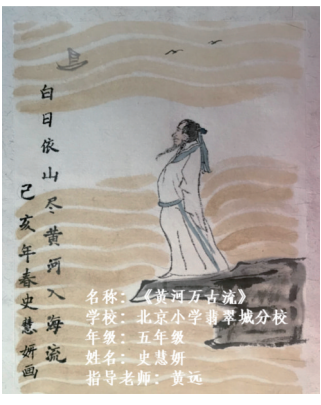 白日依山尽黄河入海流
己亥年春史慧妍画
名称：《黄河万古流》
学校：北京小学翡翠城分校
年级：五年级
姓名：史慧妍
指导老师：黄远